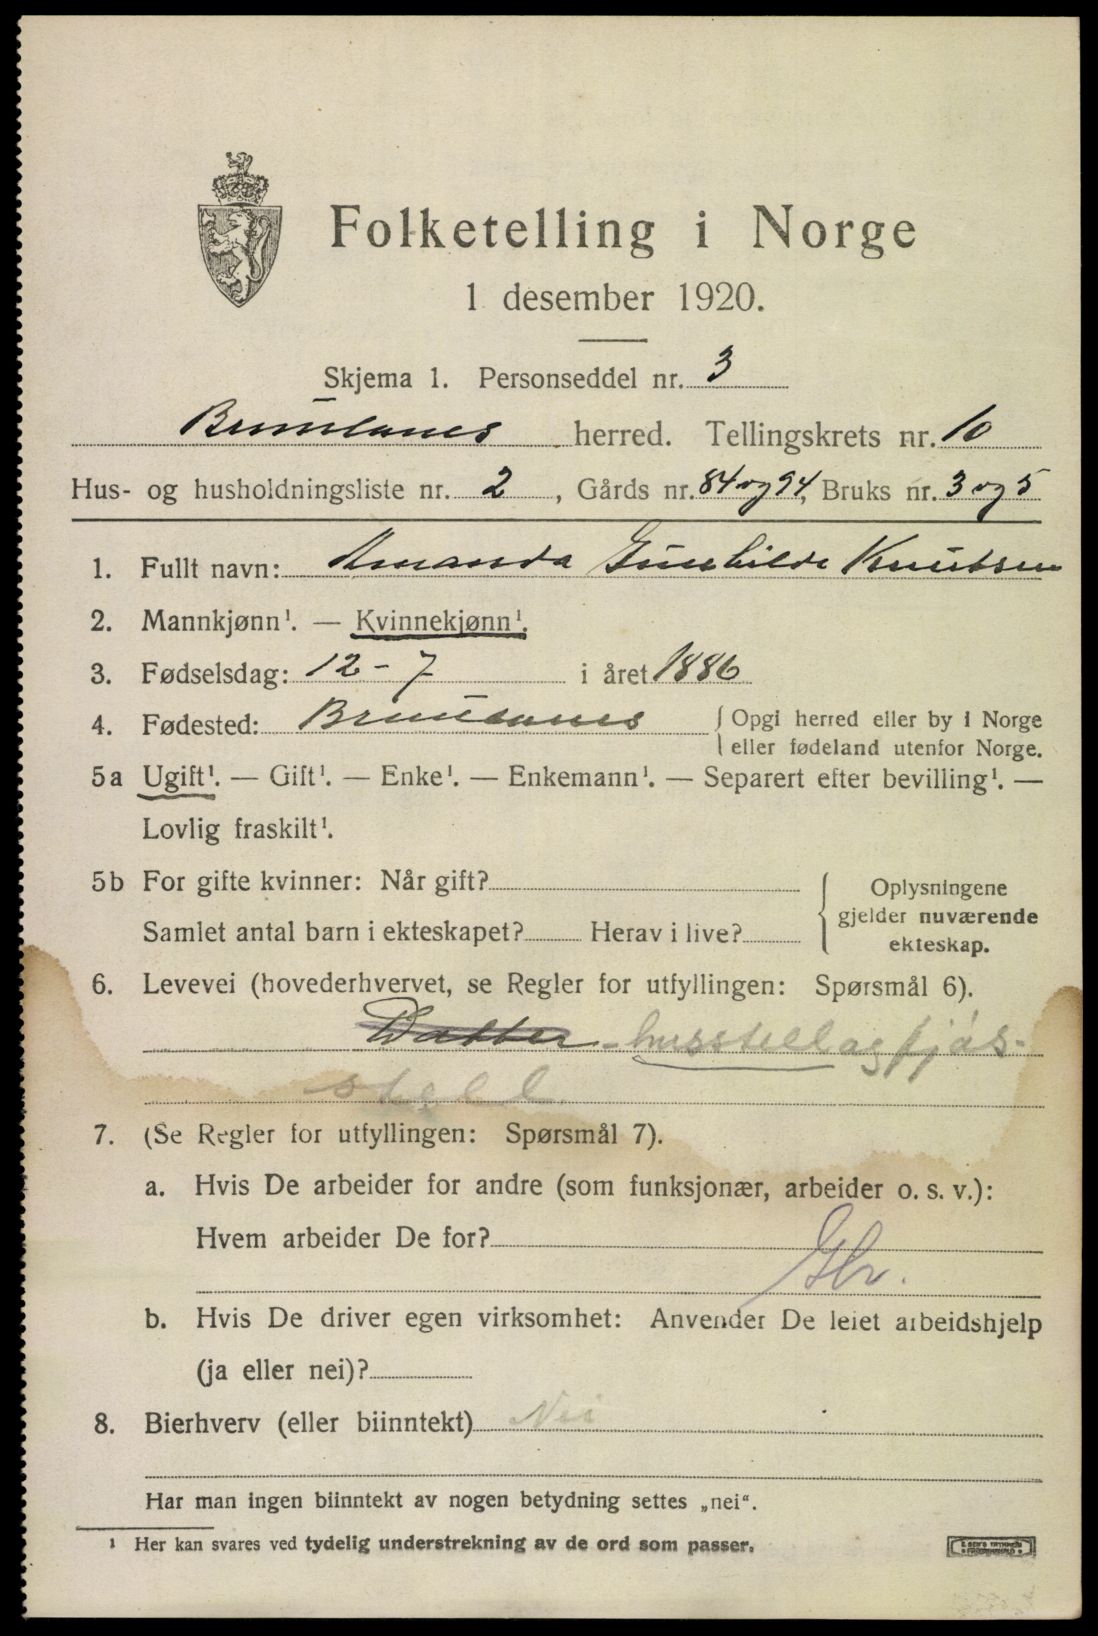 Folketelling i Norge
1 desember 1920.
Skjema 1. Personseddel nr. 3
Brunlanes herred. Tellingskrets nr. 10
Hus- og husholdningsliste nr. 2, Gårds nr. 84 og 94, Bruks nr. 3 og 5
1. Fullt navn: Amanda Gunhilde Knutsen
2. Mannkjønn¹. — Kvinnekjønn¹.
3. Fødselsdag: 12 - 7 i året 1886
4. Fødested: Brunlanes { Opgi herred eller by i Norge
eller fødeland utenfor Norge.
5a Ugift¹. — Gift¹. — Enke¹. — Enkemann¹. — Separert efter bevilling¹. —
Lovlig fraskilt¹.
5b For gifte kvinner: Når gift?
Samlet antal barn i ekteskapet? Herav i live?
{ Oplysningene
gjelder nuværende
ekteskap.
6. Levevei (hovederhvervet, se Regler for utfyllingen: Spørsmål 6).
Datter - husstell og fjøs-
stell
7. (Se Regler for utfyllingen: Spørsmål 7).
a. Hvis De arbeider for andre (som funksjonær, arbeider o. s. v.):
Hvem arbeider De for?
Gbr.
b. Hvis De driver egen virksomhet: Anvender De leiet arbeidshjelp
(ja eller nei)?
8. Bierhverv (eller biinntekt) Nei
Har man ingen biinntekt av nogen betydning settes „nei“.
¹ Her kan svares ved tydelig understrekning av de ord som passer.